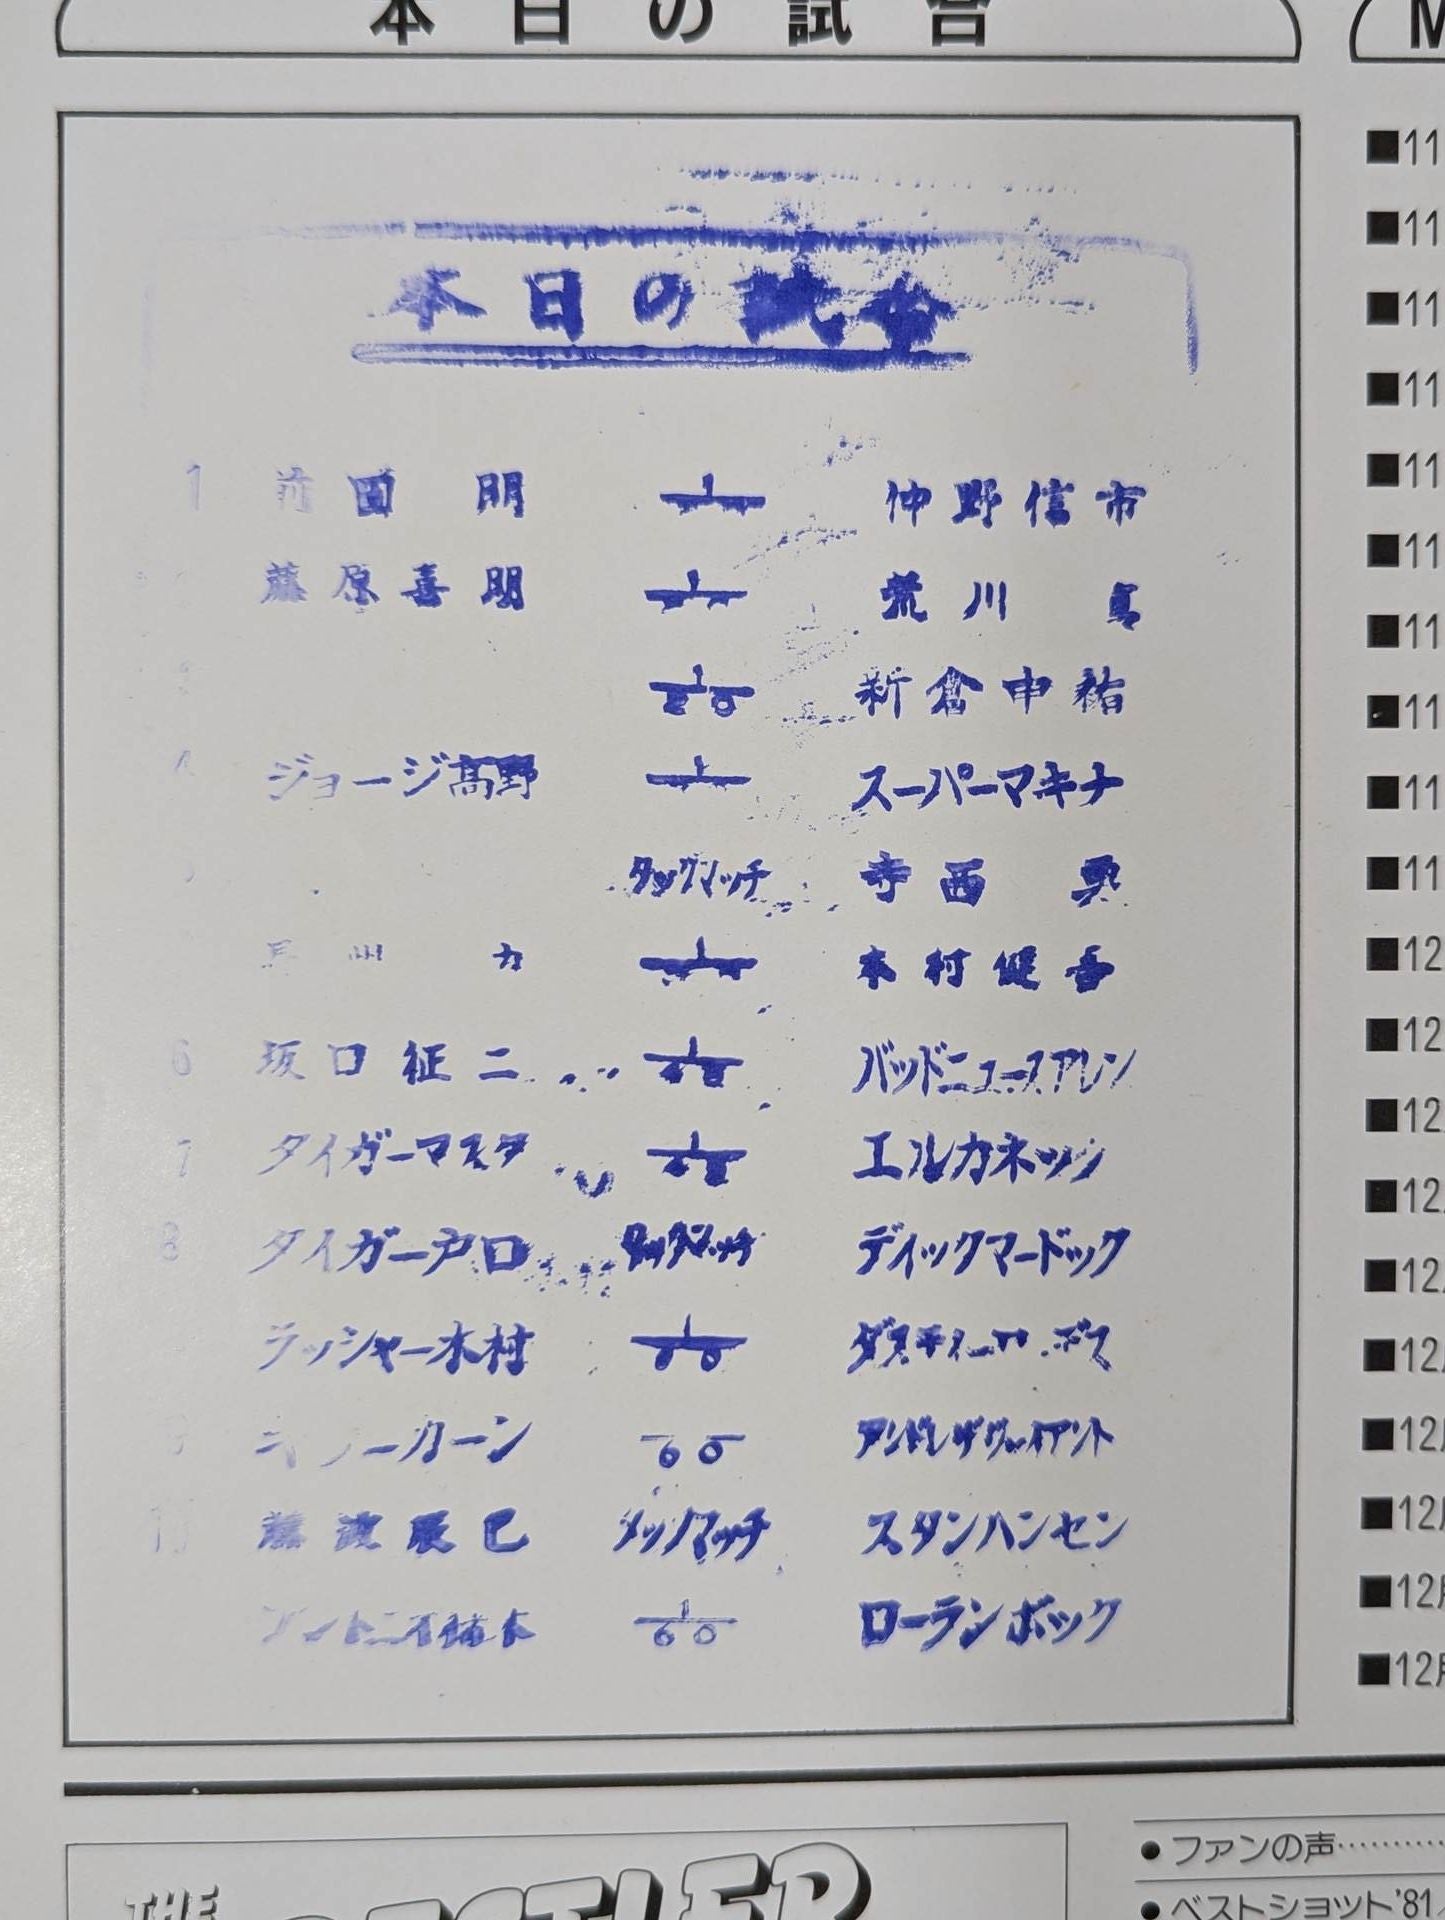 本日の試合
M
本日の試合
1 前田 明 仲野信市
藤原喜明 荒川 真
新倉申祐
ジョージ高野 スーパーマキナ
タッグマッチ 寺西 勇
長州 力 木村健吾
6 坂口征二 バッドニュースアレン
7 タイガーマスク エルカネック
8 タイガー戸口 タッグマッチ ディックマードック
ラッシャー木村 ダスティーローデス
9 キラーカーン 60 アンドレザジャイアント
10 藤波辰巳 タッグマッチ スタンハンセン
アントニオ猪木 1/60 ローランボック
■11
■11
■11
■11
■11
■11
■11
■11
■11
■11
■12
■12
■12
■12
■12
■12月
■12
■12月
■12月
■12月
THE
WRESTLER
●ファンの声…………
●ベストショット'81